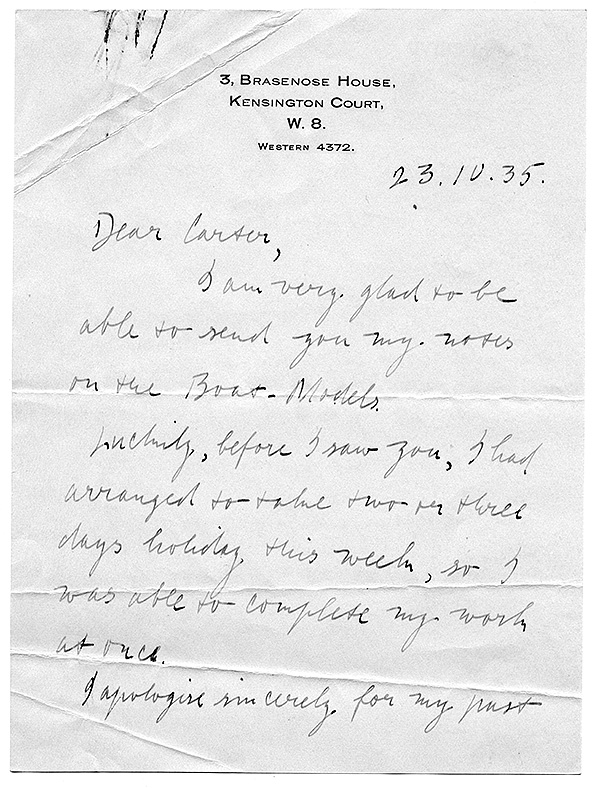 3, BRASENOSE HOUSE,
KENSINGTON COURT,
W. 8.
WESTERN 4372.
23.10.35.
Dear Carter,
I am very glad to be
able to send you my notes
on the Boat-Models.
Luckily, before I saw you, I had
arranged to take two or three
days holiday this week, so I
was able to complete my work
at once.
I apologise sincerely for my past